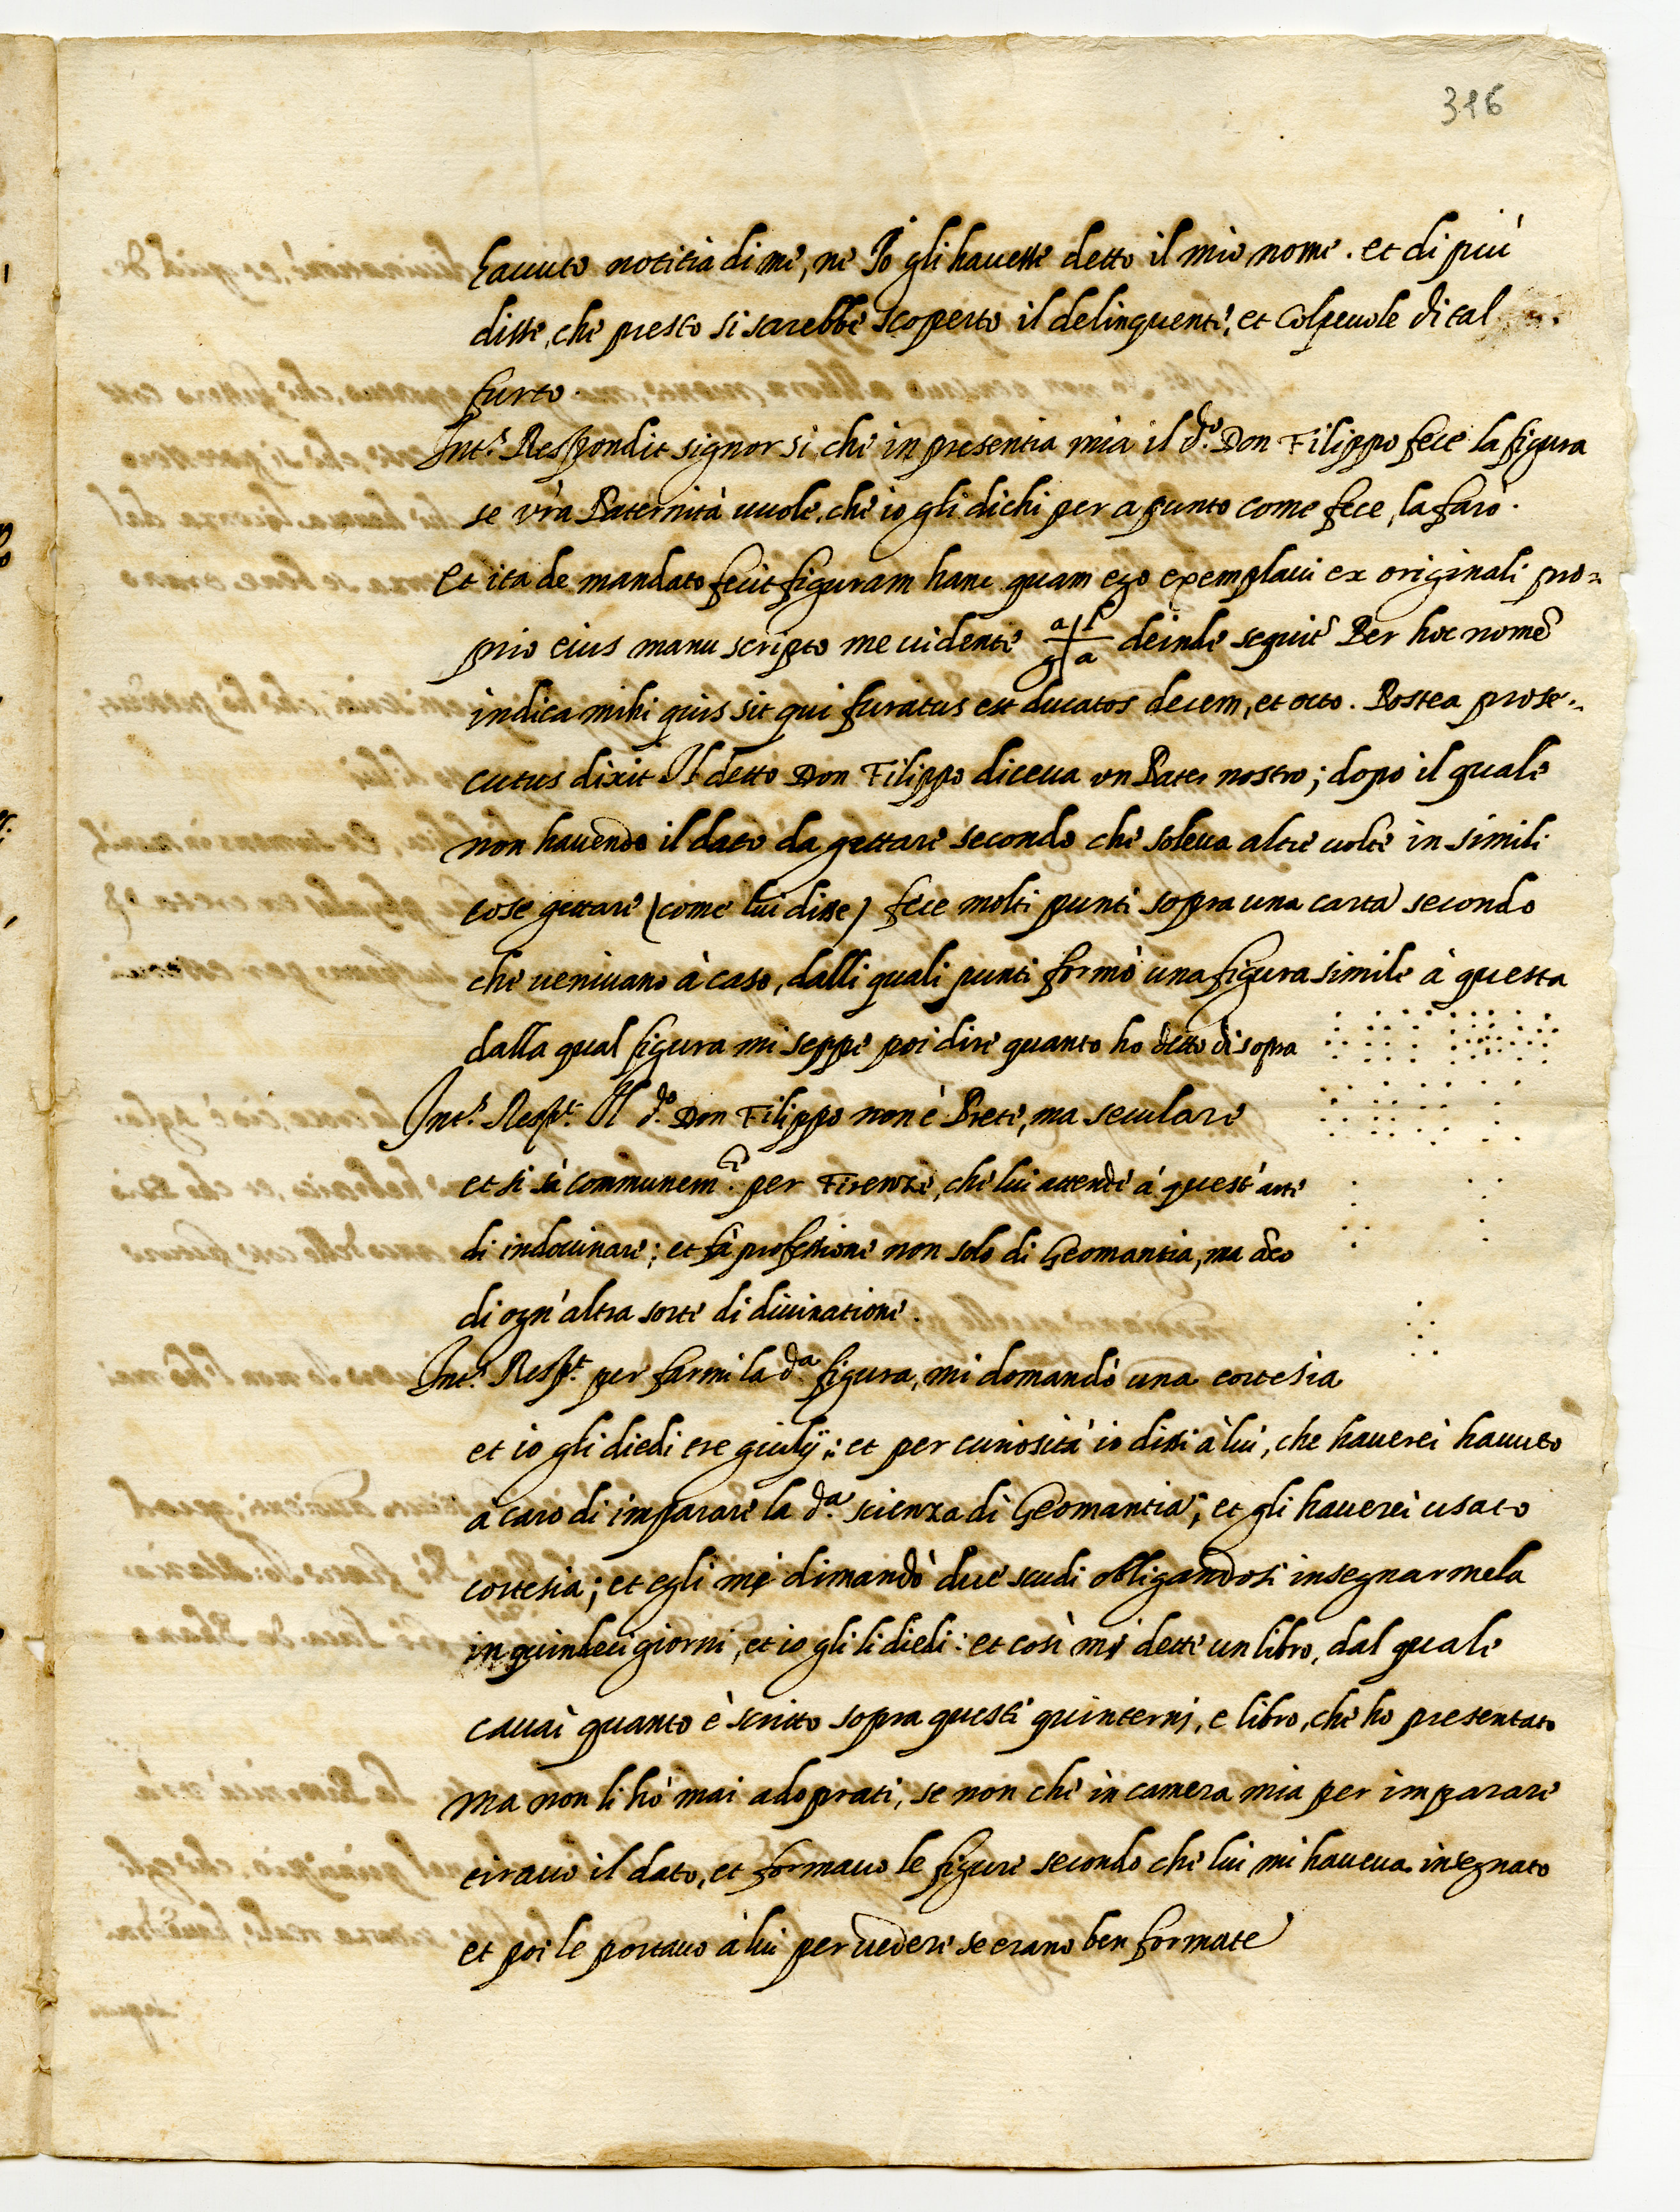 316
havuto notitia di me, ne Io gli havesse detto il mio nome. et di più
disse, che presto si sarebbe scoperto il delinquente, et Colpevole di tal
furto.
Int.s Respondit signor si che in presentia mia il d.o Don Filippo fece la figura
se v'ra Paternità vuole, che io gli dichi per apunto come fece, la farò.
et ita de mandato fecit figuram hanc quam ego exemplavi ex originali pro=
prio eius manu scripto me vidente a | l g | a deinde sequit^r Per hoc nomē
indica mihi quis sit qui furatus est ducatos decem, et octo. Postea prose=
cutus dixit Il detto Don Filippo diceva un Pater nostro; dopo il quale
non havendo il dato da gettare secondo che soleva altre volte in simili
cose gettare (come lui disse) fece molti punti sopra una carta secondo
che venivano à caso, dalli quali punti formò una figura simile à questa
dalla qual figura mi seppe poi dire quanto ho detto di sopra
Int.s Resp.t Il d.o Don Filippo non è Prete, ma seculare
et si sà communem.te per Firenze, che lui attende à quest'arte
di indovinare; et fà professione non solo di Geomantia, ma āco
di ogn'altra sorte di divinatione.
Int.s Resp.t per farmi la d.a figura, mi domandò una cortesia
et io gli diedi tre giulij: et per curiosità io dissi à lui, che haverei havuto
a caro di imparare la d.a scienza di Geomantia; et gli haverei usato
cortesia; et egli mi dimandò due scudi obligandosi insegnarmela
in quindeci giorni, et io gli li diedi: et così mi dette un libro, dal quale
cavai quanto è scritto sopra questi quinterni, e libro, che ho presentato
ma non li hò mai adoprati, se non che in camera mia per imparare
tiravo il dato, et formavo le figure secondo che lui mi haveva insegnato
et poi le portavo à lui per vedere se erano ben formate